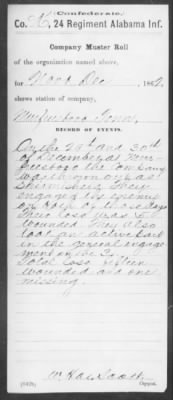 (Confederate.)
Co. K, 24 Regiment Alabama Inf.
Company Muster Roll
of the organization named above,
for Nov & Dec, 1862.
shows station of company,
Murfreesboro Tenn.
RECORD OF EVENTS.
On the 29th and 30th
of December at Mur-
freesboro the Company
was thrown out as
skirmishers. They
engaged the enemy
on both of those days
Their loss was 5
wounded. They also
took an active part
in the general engage
ment on the 31
Total loss fifteen
wounded and one
missing.
(642b)
Copyist.